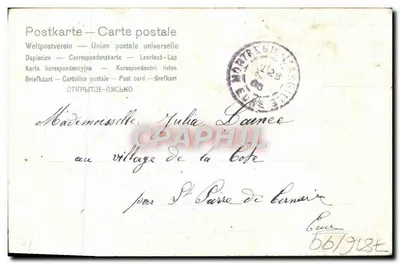 Postkarte — Carte postale
Weltpostverein — Union postale universelle
Dopisnice — Correspondenzkarte — Levelező-Lap
Karta korespondencyjna — Korespondenční lístek
Briefkaart — Cartolina postale — Post card — Brefkort
ОТКРЫТОЕ-ПИСЬМО
EURE
CPAPHIL
Mademoiselle Julia
au village de la Côte
par St Pierre de
Eure